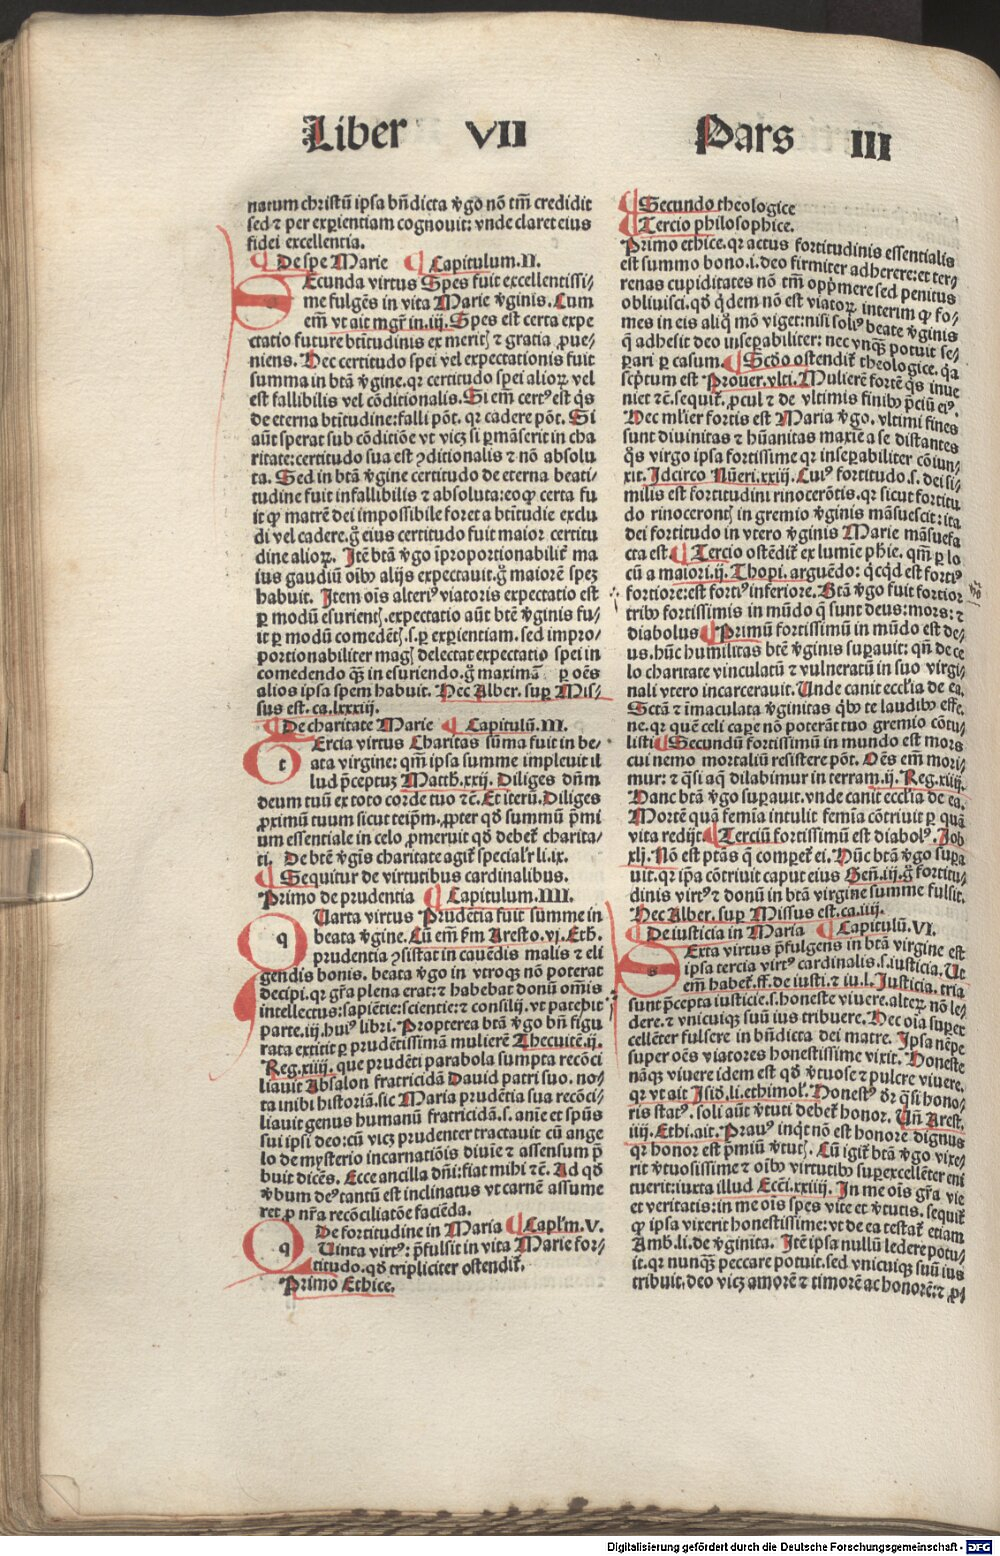 Liber VII
Pars III
natum christū ipsa bn̄dicta v̄go nō tm̄ credidit
sed ⁊ per exꝑientiam cognouit: vnde claret eius
fidei excellentia.
¶ De spe Marie ¶ Capitulum.II.
Ecunda virtus Spes fuit excellentissi-
me fulgēs in vita Marie v̄ginis. Cum
em̄ vt ait mgr̄ in.iij. Spes est certa expe
ctatio future btītudinis ex meritꝭ ⁊ gratia ꝓue-
niens. Hec certitudo spei vel expectationis fuit
summa in btā v̄gine. qꝛ certitudo spei alioꝝ vel
est fallibilis vel cōditionalis. Si em̄ certꝰ est q̄s
de eterna btītudine: falli pōt. qꝛ cadere pōt. Si
aūt sperat sub cōditiōe vt vicꝫ si ꝑmāserit in cha
ritate: certitudo sua est ꝯditionalis ⁊ nō absolu
ta. Sed in btā v̄gine certitudo de eterna beati-
tudine fuit infallibilis ⁊ absoluta: eo ꝙ certa fu
it ꝙ matrē dei impossibile foret a btītudīe exclu
di vel cadere. g̊ eius certitudo fuit maior certitu
dine alioꝝ. Itē btā v̄go īproportionabilit̄ ma
ius gaudiū oībꝰ alijs expectauit. g̊ maiorē spez
habuit. Item oīs alteriꝰ viatoris expectatio est
ꝑ modū esurientꝭ. expectatio aūt btē v̄ginis fu-
it ꝑ modū comedētꝭ. s. ꝑ exꝑientiam. sed impro-
portionabiliter magꝭ delectat expectatio spei in
comedendo qꝫ in esuriendo. g̊ maximā ꝑ oēs
alios ipsa spem habuit. Hec Alber. suꝑ Mis-
sus est. ca. lxxxiij.
¶ De charitate Marie ¶ Capitulū.III.
t Ercia virtus Charitas sūma fuit in be-
ata virgine: qm̄ ipsa summe impleuit il
lud p̄ceptuꝫ Matth.xxij. Diliges dn̄m
deum tuū ex toto corde tuo ⁊c̄. Et iterū. Diliges
ꝓximū tuum sicut teip̄m. ꝓpter qd̄ summū p̄mi
um essentiale in celo ꝓmeruit qd̄ debet̄ charita-
ti. De btē v̄gīs charitate agit̄ specialr̄ li. ix.
¶ Sequitur de virtutibus cardinalibus.
Primo de prudentia ¶ Capitulum.IIII.
q Uarta virtus Prudētia fuit summe in
beata v̄gine. Cū em̄ ẜm Aresto. vj. Eth.
prudentia ꝯsistat in cauēdis malis ⁊ eli
gendis bonis. beata v̄go in vtroqꝫ nō poterat
decipi. qꝛ gr̄a plena erat: ⁊ habebat donū om̄is
intellectus: sapiētie: scientie: ⁊ consilij. vt patebit
parte. iij. huiꝰ libri. Propterea btā v̄go bn̄ figu
rata extitit ꝑ prudētissimā mulierē Thecuitē. ij.
Reg.xiiij. que prudēti parabola sumpta recōci
liauit Absalon fratricidā Dauid patri suo. no-
ta inibi historiā. sic Maria prudētia sua recōci-
liauit genus humanū fratricidā. s. anīe et spūs
sui ipsi deo: cū vicꝫ prudenter tractauit cū ange
lo de mysterio incarnatiōis diuīe ⁊ assensum p̄
buit dicēs. Ecce ancilla dn̄i: fiat mihi ⁊c̄. Ad qd̄
v̄bum deꝰ tantū est inclinatus vt carnē assume
ret ꝓ nr̄a recōciliatōe faciēda.
De fortitudine in Maria ¶ Capl̄m.V.
q Uinta virtꝰ: p̄fulsit in vita Marie for-
titudo. qd̄ tripliciter ostendit̄.
Primo Ethice.
¶ Secundo theologice
¶ Tercio philosophice.
Primo ethice. qꝛ actus fortitudinis essentialis
est summo bono. i. deo firmiter adherere: et ter-
renas cupiditates nō tm̄ opp̄mere sed penitus
obliuisci. qd̄ q̄dem nō est viatoꝝ interim ꝙ fo-
mes in eis aliq̊ mō viget: nisi soliꝰ beate v̄ginis
q̄ adhesit deo inseꝑabiliter: nec vnqꝫ potuit se-
ꝑari ꝑ casum. ¶ Scd̄o ostendit̄ theologice. q̄a
scp̄tum est Prouer. vlti. Mulierē fortē q̄s inue
niet ⁊c̄. sequit̄. ꝓcul ⁊ de vltimis finibꝰ p̄ciū eiꝰ.
Hec ml̄ier fortis est Maria v̄go. vltimi fines
sunt diuinitas ⁊ hūanitas maxīe a se distantes
q̄s virgo ipsa fortissime qꝛ inseꝑabiliter cōiun-
xit. Idcirco Nūeri. xxiij. Cuiꝰ fortitudo. s. dei si-
milis est fortitudini rinocerōtis. qꝛ sicut fortitu
do rinocerontꝭ in gremio v̄ginis māsuescit: ita
dei fortitudo in vtero v̄ginis Marie māsuefa
cta est. ¶ Tercio ostēdit̄ ex lumīe phīe. qm̄ ꝑ lo
cū a maiori. ij. Thopi. arguēdo: qͥcqͥd est fortiꝰ
fortiore: est fortiꝰ inferiore. Btā v̄go fuit fortior
tribꝰ fortissimis in mūdo q̄ sunt deus: mors: ⁊
diabolus ¶ Primū fortissimū in mūdo est de-
us. hūc humilitas btē v̄ginis suꝑauit: qn̄ de ce
lo charitate vinculatū ⁊ vulneratū in suo virgi-
nali vtero incarcerauit. Unde canit eccl̄ia de ea.
Sctā ⁊ īmaculata v̄ginitas qͥbꝰ te laudibꝰ effe.
ne. qꝛ quē celi caꝑe nō poterāt tuo gremio cōtu-
listi ¶ Secundū fortissimū in mundo est mors
cui nemo mortaliū resistere pōt. Oēs em̄ mori-
mur: ⁊ q̄si aq̄ dilabimur in terram. ij. Reg. xiiij.
Hanc btā v̄go suꝑauit. vnde canit eccl̄ia de ea.
Mortē quā femīa intulit femīa cōtriuit ꝑ quā
vita redijt. ¶ Terciū fortissimū est diabolꝰ. Job
xlj. Nō est ptās q̄ comꝑet̄ ei. Hūc btā v̄go suꝑa
uit. qꝛ ipa cōtriuit caput eius Gen̄. iij. g̊ fortitu-
dinis virtꝰ ⁊ donū in btā virgine summe fulsit.
Hec Alber. suꝑ Missus est. ca. iiij.
¶ De iusticia in Maria ¶ Capitulū.VI.
s Exta virtus p̄fulgens in btā virgine est
ipsa tercia virtꝰ cardinalis. s. iusticia. Ut
em̄ habet̄. ff. de iusti. ⁊ iu. l. Justicia. tria
sunt p̄cepta iusticie. s. honeste viuere. alteꝝ nō le-
dere. ⁊ vnicuiqꝫ suū ius tribuere. Hec oīa suꝑex
cellēter fulsere in bn̄dicta dei matre. Ipsa nēpe
super oēs viatores honestissime vixit. Honeste
nāqꝫ viuere idem est qd̄ v̄tuose ⁊ pulcre viuere.
qꝛ vt ait Jsid. li. ethimol. Honestꝰ dr̄ q̄si hono-
ris statꝰ. soli aūt v̄tuti debet̄ honor. Un̄ Arest.
iiij. Ethi. ait. Prauꝰ inqͥt nō est honore dignus
qꝛ honor est p̄miū v̄tutꝭ. Cū igit̄ btā v̄go vixe-
rit v̄tuosissime ⁊ oībꝰ virtutibꝰ suꝑexcellēter eni
tuerit: iuxta illud Ecci. xxiiij. In me oīs gr̄a vie
et veritatis: in me oīs spes vite et v̄tutis. sequit̄
ꝙ ipsa vixerit honestissime: vt de ea testat̄ etiam
Amb. li. de v̄ginita. Itē ipsa nullū ledere potu-
it. qꝛ nunqꝫ peccare potuit. sed vnicuiqꝫ suū ius
tribuit. deo vicꝫ amorē ⁊ timorē ac honorē: ⁊ ꝓ
Digitalisierung gefördert durch die Deutsche Forschungsgemeinschaft - DFG